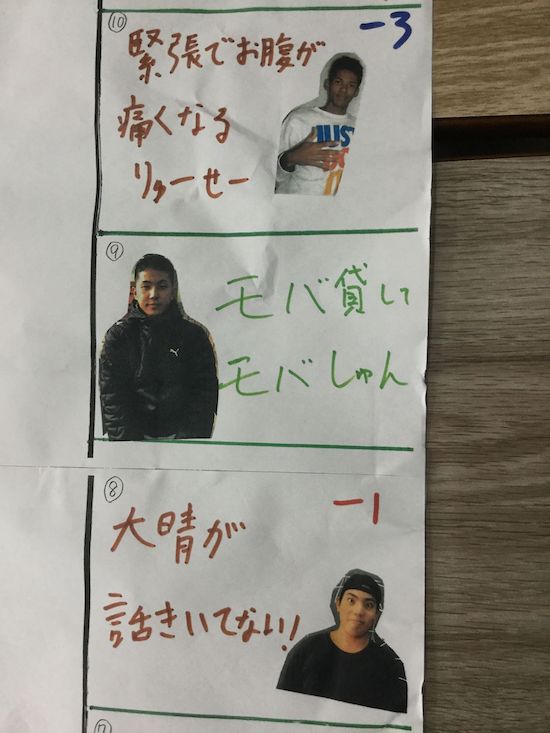 ⑩
-3
緊張でお腹が
痛くなる
りゅーせー
JUST
DO
⑨
モバ貸して
モバしゅん
⑧
-1
大晴が
話きいてない!
⑦